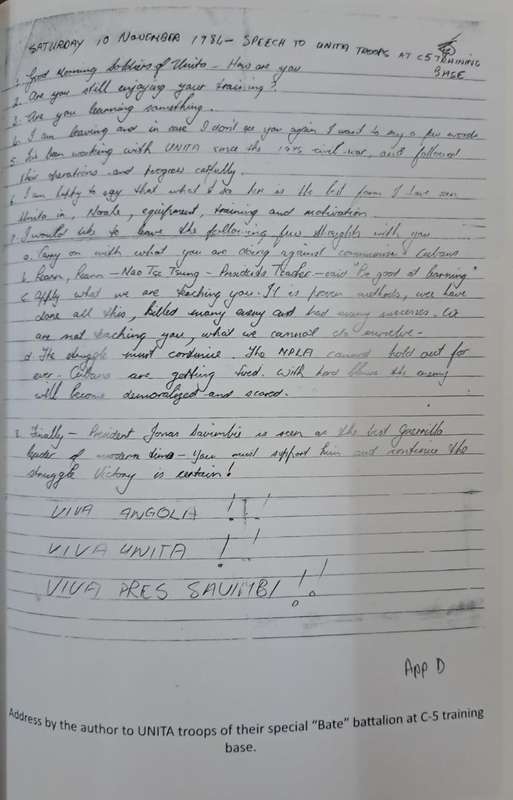 SATURDAY 10 NOVEMBER 1984 - SPEECH TO UNITA TROOPS AT C5 TRAINING
BASE
1. Good Morning Soldiers of Unita - How are you
2. Are you still enjoying your training?
3. Are you learning something.
4. I am leaving and in case I don't see you again I want to say a few words
5. been working with UNITA since the 1975 civil war, and followed
their operations and progress carefully.
6. I am happy to say that what I see here is the best form I have seen
Unita in, Morale, equipment, training and motivation
7. I would like to leave the following few thoughts with you
a. Carry on with what you are doing against communism Cubans
b. Learn, Learn - Mao Tse Tsung - Teacher - said "Be good at learning"
c. Apply what we are teaching you. It is proven methods, we have
done all this, killed many enemy and had many successes. We
are not teaching you, what we cannot do ourselves -
d. The struggle must continue. The MPLA cannot hold out for
ever - Cubans are getting tired. With hard blows the enemy
will become demoralized and scared.
8. Finally - President Jonas Savimbi is seen as the best Guerrilla
leader of modern time - You must support him and continue the
struggle Victory is certain!
VIVA ANGOLA !!!
VIVA UNITA !!
VIVA PRES SAVIMBI !!!
App D
Address by the author to UNITA troops of their special "Bate" battalion at C-5 training
base.